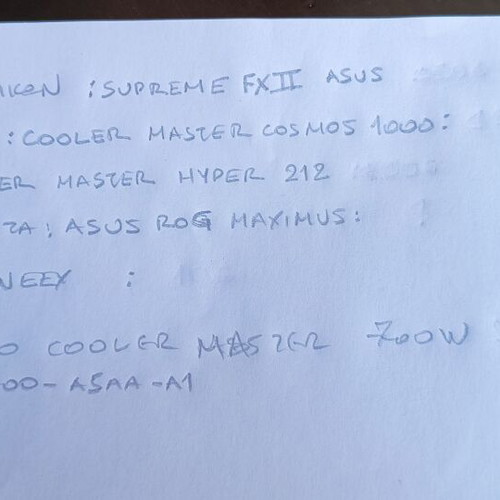 : SUPREME FXII ASUS
: COOLER MASTER COSMOS 1000:
ER MASTER HYPER 212
ZA: ASUS ROG MAXIMUS:
NEEX :
O COOLER MASTER 700W
00-ASAA-A1